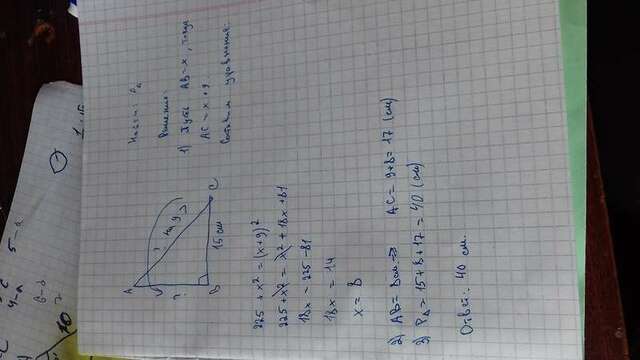 4-а
5-а
6-
7
10
A
?
?
на 9
B
15 см
C
Найти: P△
Решение:
1) Пусть AB=x, тогда
AC = x + 9
Составим уравнение:
225 + x² = (x+9)²
225 + x² = x² + 18x + 81
18x = 225 - 81
18x = 14
x = 8
2) AB = 8см ⇒ AC = 9+8 = 17 (см)
3) P△ = 15 + 8 + 17 = 40 (см)
Ответ: 40 см.